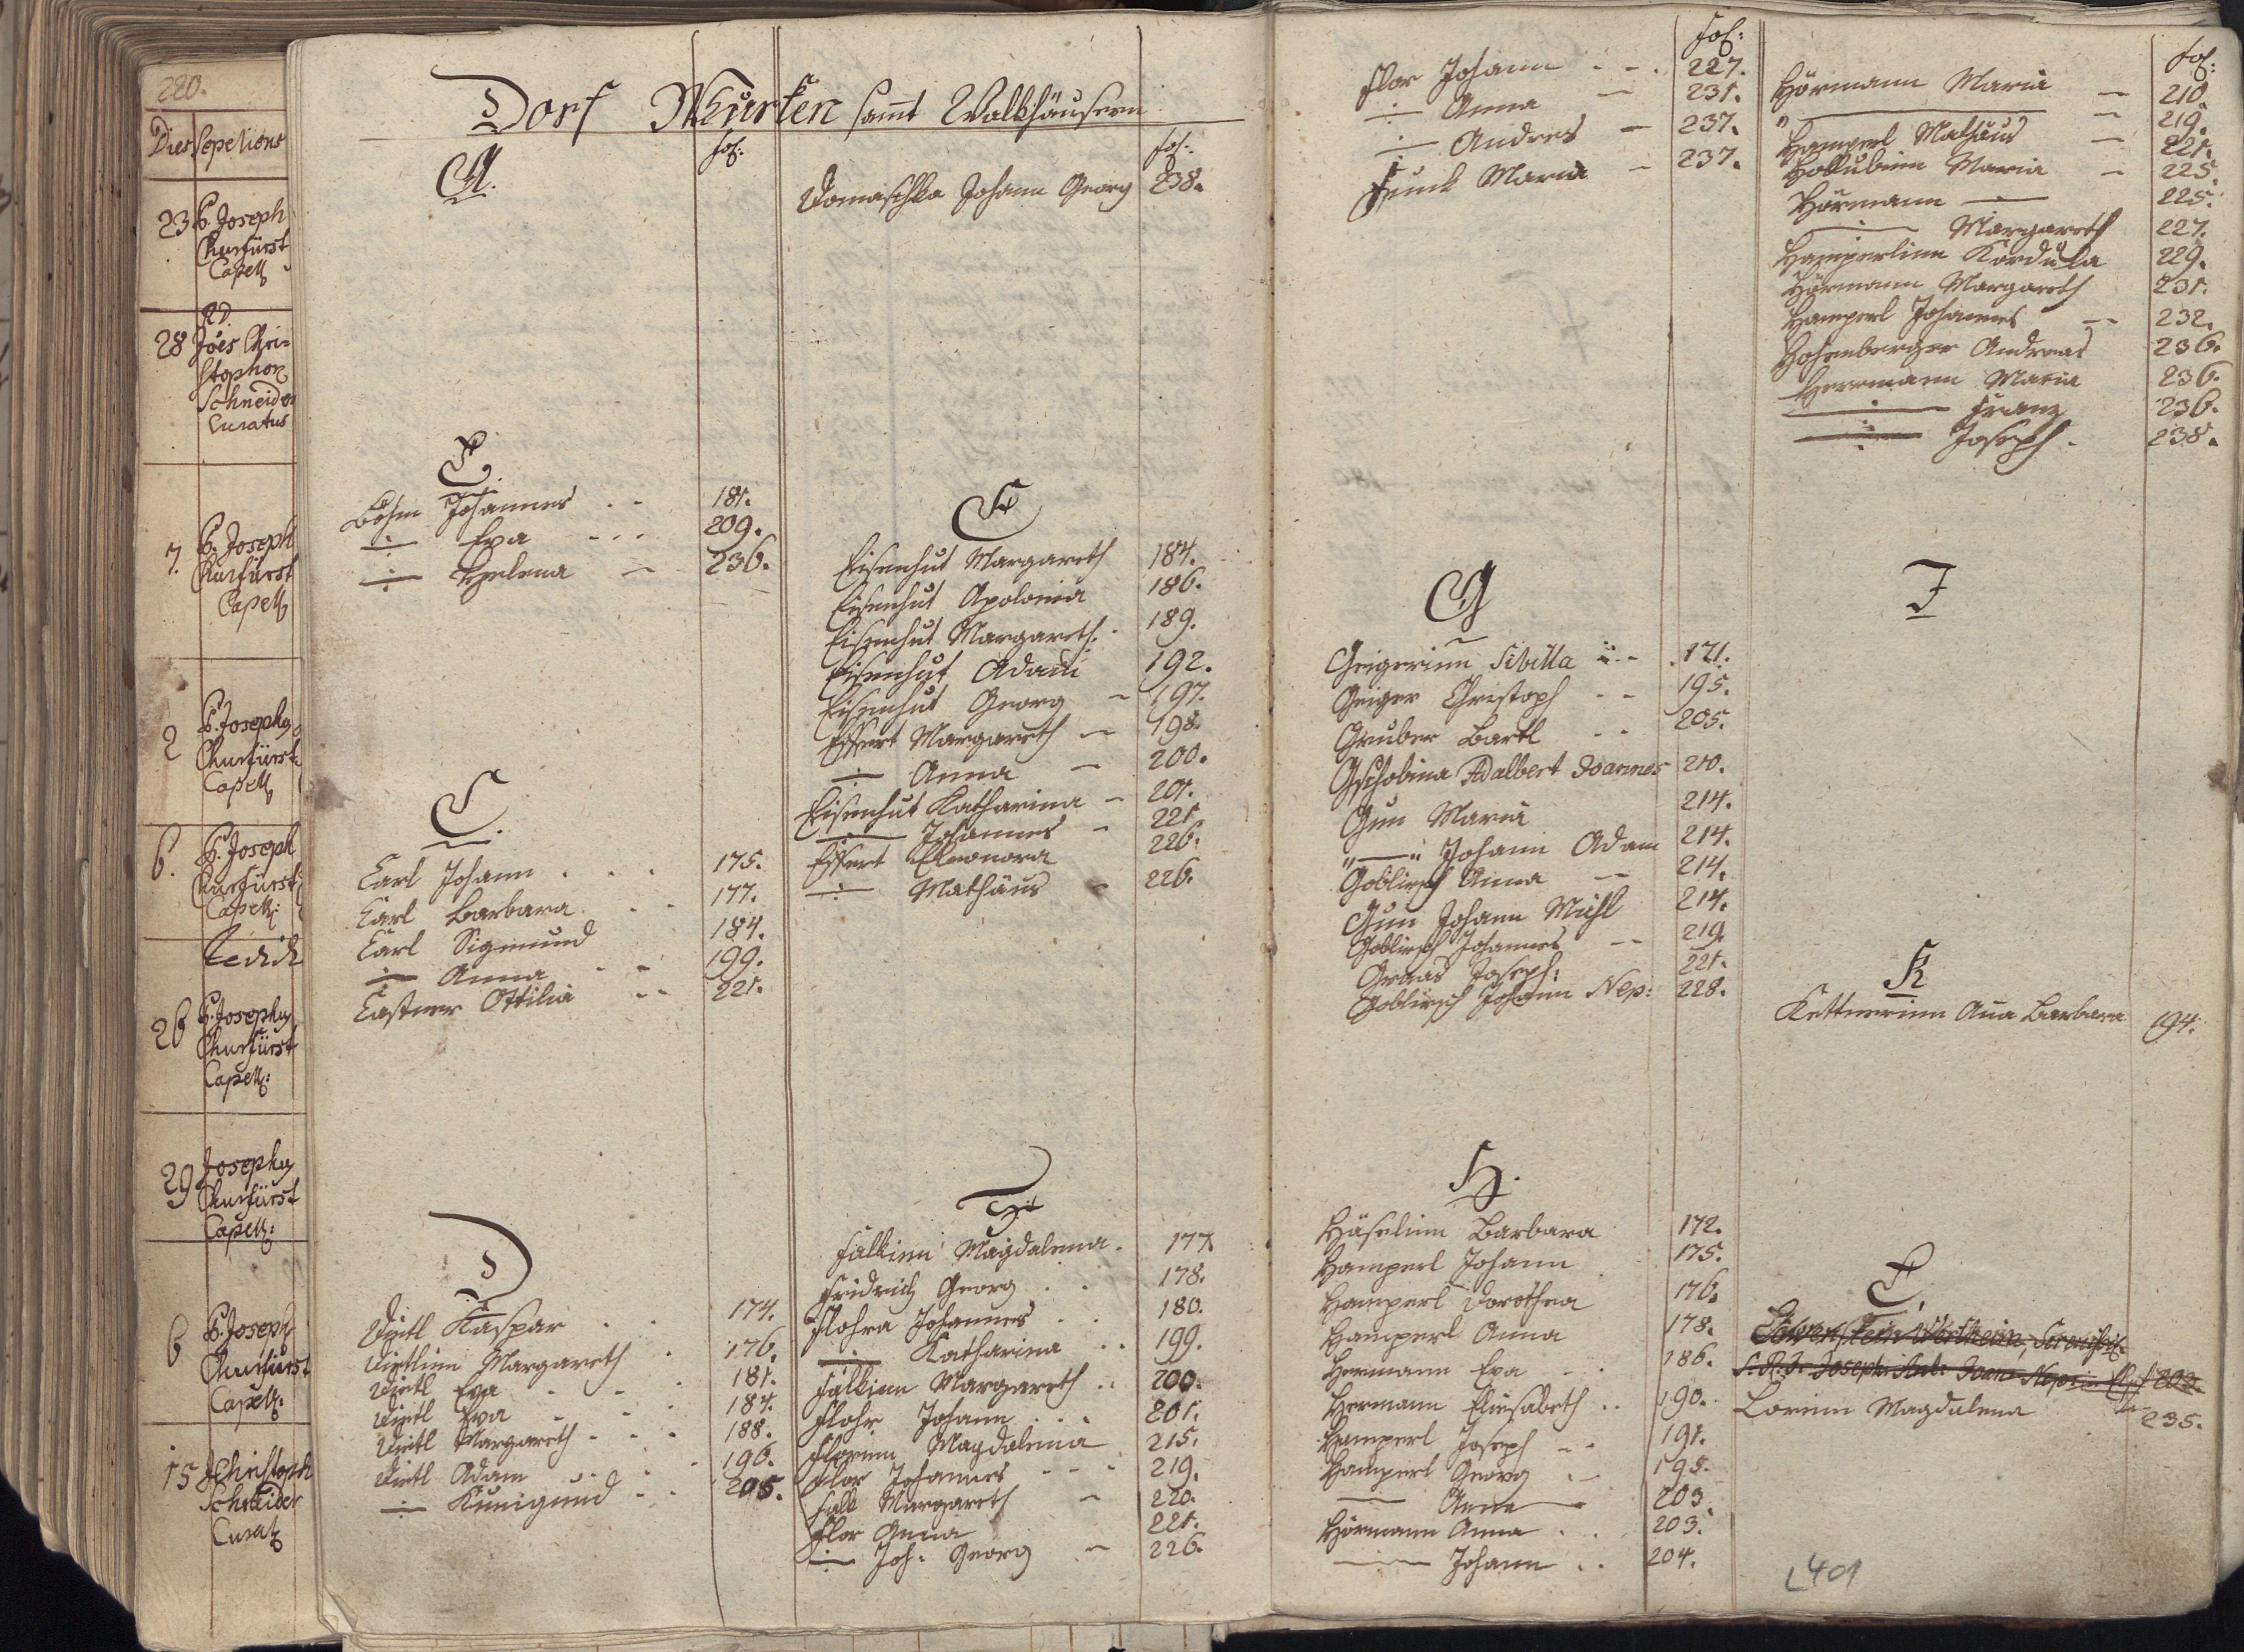 220.
Dies Sepelions
23 P. Joseph
Churfürst
Capell
RD.
28 Jões Chri-
stophor
Schneider
Curatus
7. P. Joseph
Churfürst
Capell
2 P. Joseph
Churfürst
Capell
6. P. Joseph
Churfürst
Capell:
26 P. Joseph
Churfürst
Capell:
29 Joseph
Churfürst
Capell:
6 P. Joseph
Churfürst
Capell:
15 Christoph
Schneider
Curat
Dorf Thürsten samt Walkhäusern
A.
fol:
B.
Böhm Johannes . - 181.
-:- Eva - . . 209.
-:- Helena - 236.
C.
Carl Johann . . . 175.
Carl Barbara . . 177.
Carl Sigmund 184.
-:- Anna . - 199.
Castner Ottilia - - 221.
D
Dietl Kaspar . . 174.
Dietlinn Margareth . 176.
Dietl Eva . - . 181.
Dietl Eva - - . 184.
Dietl Margareth . - . 188.
Dietl Adam . . . 196.
-:- Kunigund . . 205.
fol:
Domaschka Johann Georg 238.
E
Eisenhut Margareth 184.
Eisenhut Apolonia 186.
Eisenhut Margareth. . 189.
Eisenhut Adam 192.
Eisenhut Georg - 197.
Essert Margareth - 198.
-:- Anna - 200.
Eisenhut Katharina - 201.
-:- Johannes - 221.
Essert Eleonora 226.
-:- Mathäus - 226.
F
Falkinn Magdalena . 177.
Fridrich Georg . . 178.
Flohra Johannes . . 180.
-:- Katharina . . 199.
Falkinn Margareth . . 200.
Flohr Johann . . . 201.
Florinn Magdalena 215.
Flor Johannes - - - 219.
Falk Margareth - 220.
Flor Anna 221.
-:- Joh: Georg - 226.
fol:
Flor Johann . - . 227.
-:- Anna - 231.
-:- Andres - 237.
Funk Maria - 237.
G
Geigerinn Sibilla - 171.
Geiger Christoph - - 195.
Gruber Bartl - - 205.
Gschobina Adalbert Joannes 210.
Gun Maria 214.
" — " Johann Adam 214.
Goblirsch Anna - 214.
Gun Johann Michl 214.
Goblirsch Johannes - - 219.
Graas Joseph: 221.
Goblirsch Johann Nep: 228.
H.
Häselinn Barbara 172.
Hamperl Johann 175.
Hamperl Dorothea 176.
Hamperl Anna 178.
Hermann Eva - . 186.
Hermann Elisabeth . . 190.
Hamperl Joseph - - 191.
Hamperl Georg . - 195.
— Anna — 203
Hörmann Anna . . 203.
— Johann . . 204.
fol:
Hörmann Maria - 210.
" — - 219.
Hamperl Mathäus - 221.
Hollubinn Maria - 225.
Hörmann — 225.
-:- Margareth 227.
Hamperlinn Kordula 229.
Hörmann Margareth 231.
Hamperl Johannes - - 232.
Hohenberger Andreas 236.
Herrmann Maria 236.
-:- Franz 236.
-:- Joseph . 238.
I
K
Kettnerinn Ana Barbara 194.
L
Löwenstein Wertheim,
S. R. J. Joseph: Ant: Joan: Nep: 203.
Lorinn Magdalena - 235.
401